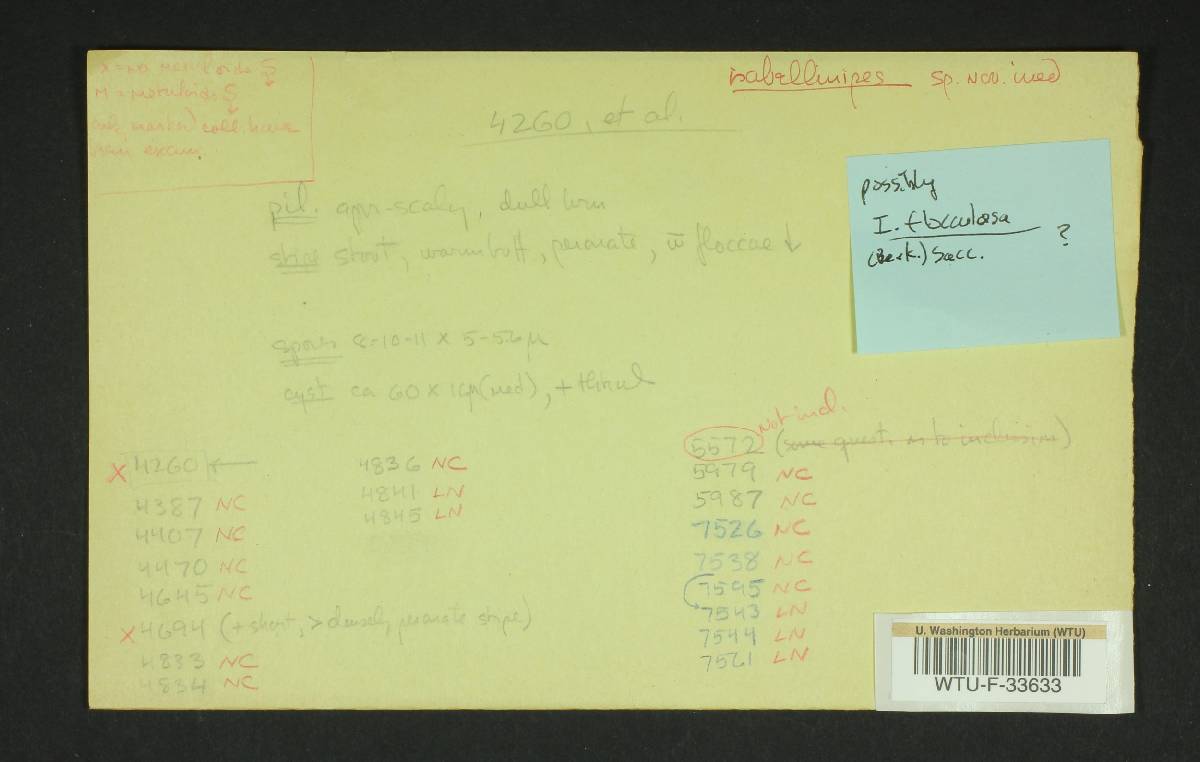 isabellinipes sp. nov. ined
4260, et al.
possibly
I. flocculosa
(Berk.) Sacc. ?
pil. appr-scaly, dull brn
stipe short, warm buff, peronate, w̄ floccae ↓
spores 8-10-11 x 5-5.6 µ
cyst ca 60 x 16µ (med), + thinwl
Not incl.
x 4260 ←
4387 NC
4407 NC
4470 NC
4645 NC
x 4694 (+ short, > densely peronate stipe)
4833 NC
4834 NC
4836 NC
4841 LN
4845 LN
5572 (some quest. as to inclusion)
5979 NC
5987 NC
7526 NC
7538 NC
7595 NC
7543 LN
7544 LN
7561 LN
U. Washington Herbarium (WTU)
WTU-F-33633